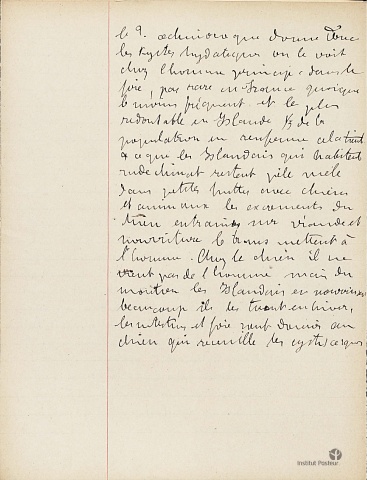 le g. echinocoque donne donc
les kystes hydatiques on le voit
chez l'homme princip. dans le
foie, pas rare en France quoique
le moins fréquent et le plus
redoutable en Islande 1/3 de la
population en renferme cela tient
à ce que les Islandais qui habitent
rude climat restent pêle mêle
dans petites huttes avec chiens
et animaux les excréments du
chien entrainés sur viande et
nourriture le transmettent à
l'homme. Chez le chien il ne
vient pas de l'homme mais du
mouton les Islandais en nourrissent
beaucoup ils les tuent en hiver,
les intestins et foie sont donnés au
chien qui recueille les cysticerques
Institut Pasteur